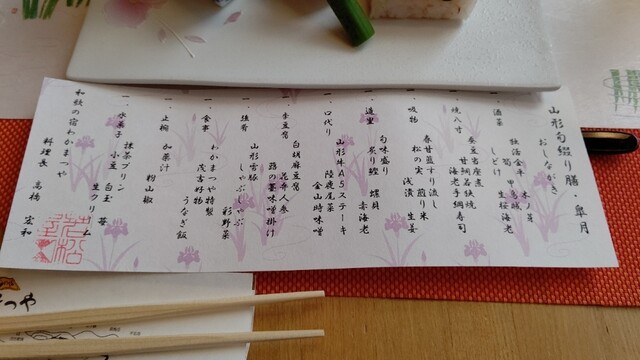 山形旬綴り膳・皐月
おしながき
一、酒菜
独活金平 木ノ芽
しどけ 筍 甲烏賊 生桜海老
一、焼八寸
蚕豆岩座煮
甘鯛若狭焼
海老手綱寿司
一、吸物
春甘藍すり流し
松の実 煎り米
浅漬 生姜
一、造里
旬味盛り
炙り鰹 螺貝
赤海老
一、口代り
山形牛A5ステーキ
陸鹿尾菜
金山時味噌
一、歩豆富
白胡麻豆富
花弁人参
蕗の薹味噌掛け
一、強肴
山形雪豚しゃぶしゃぶ
彩野菜
一、食事
わかまつや特製
茂吉好物 うなぎ飯
一、止椀 加薬汁
粉山椒
一、水菓子 抹茶プリン
小豆 白玉 苺
生クリーム
和歌の宿わかまつや
料理長 高橋 宏和
つや